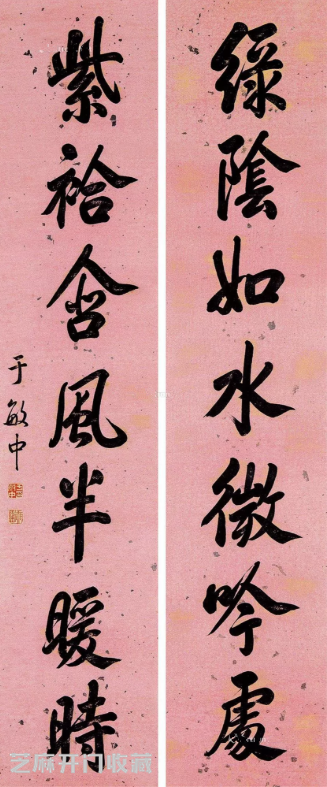 綠陰如水微吟處
紫袷含風半暖時
于敏中
芝麻开门收藏